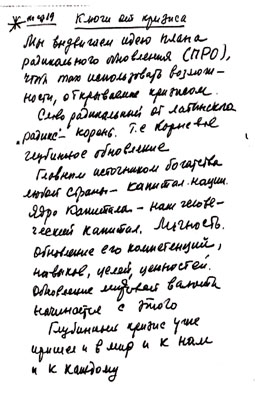 Ключи от кризиса
Мы выдвигаем идею плана
радикального обновления (ПРО),
чтоб так использовать возмож-
ности, открываемые кризисом.
Слово радикальный от латынского
„радикс" – корень. Т.е корневое
глубинное обновление
Главным источником богатства
любой страны – капитал нации.
Ядро капитала – наш челове-
ческий капитал. Личность.
Обновление его компетенций,
навыков, целей, ценностей.
Обновление мировой валюты
начинается с этого
Глубинный кризис уже
пришел и в мир и к нам
и к каждому